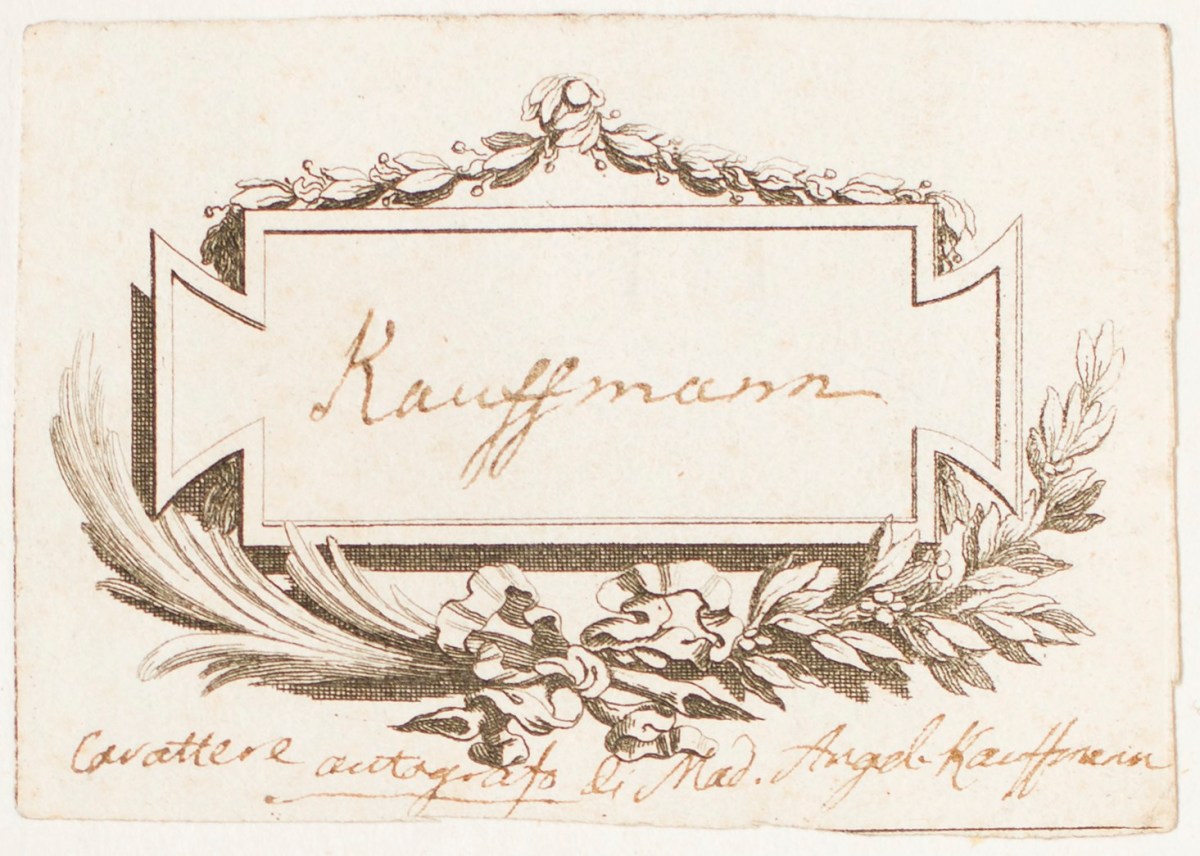 Kauffmann
Carattere autografo di Mad. Angel. Kauffmann